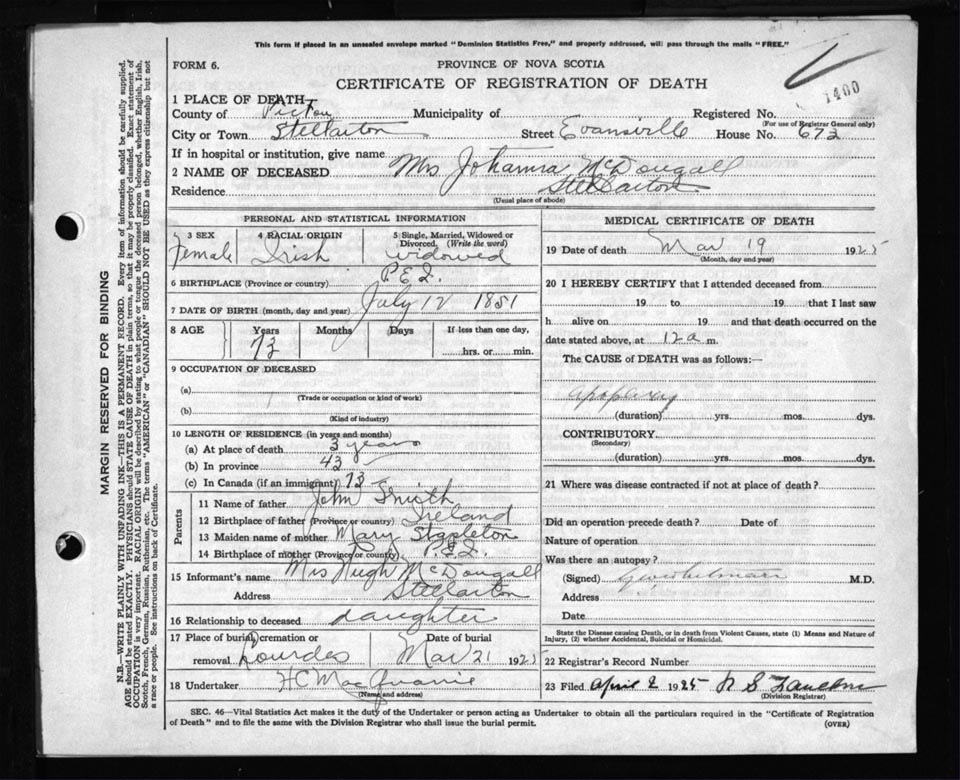 This form if placed in an unsealed envelope marked "Dominion Statistics Free," and properly addressed, will pass through the mails "FREE."
FORM 6.
PROVINCE OF NOVA SCOTIA
CERTIFICATE OF REGISTRATION OF DEATH
1400
1 PLACE OF DEATH—
County of Pictou Municipality of Registered No.
(For use of Registrar General only)
City or Town Stellarton Street Evansville House No. 673
If in hospital or institution, give name
2 NAME OF DECEASED Mrs Johanna McDougall
Residence Stellarton
(Usual place of abode)
PERSONAL AND STATISTICAL INFORMATION
3 SEX 4 RACIAL ORIGIN 5 Single, Married, Widowed or Divorced. (Write the word)
Female Irish widowed
6 BIRTHPLACE (Province or country) P.E.I.
7 DATE OF BIRTH (month, day and year) July 12 1851
8 AGE Years Months Days If less than one day,
73 hrs. or min.
9 OCCUPATION OF DECEASED
(a)
(Trade or occupation or kind of work)
(b)
(Kind of industry)
10 LENGTH OF RESIDENCE (in years and months)
(a) At place of death 3 years
(b) In province 43
(c) In Canada (if an immigrant) 73
Parents
11 Name of father John Smith
12 Birthplace of father (Province or country) Ireland
13 Maiden name of mother Mary Stapleton
14 Birthplace of mother (Province or country) P.E.I.
15 Informant's name Mrs Hugh McDougall
Address Stellarton
16 Relationship to deceased daughter
17 Place of burial, cremation or removal Lourdes Date of burial Mar 21 1925
18 Undertaker H C MacQuarrie
(Name and address)
MEDICAL CERTIFICATE OF DEATH
19 Date of death Mar 19 1925
(Month, day and year)
20 I HEREBY CERTIFY that I attended deceased from
19 to 19 that I last saw
h alive on 19 and that death occurred on the
date stated above, at 12 a m.
The CAUSE of DEATH was as follows:—
apoplexy
(duration) yrs. mos. dys.
CONTRIBUTORY
(Secondary)
(duration) yrs. mos. dys.
21 Where was disease contracted if not at place of death?
Did an operation precede death? Date of
Nature of operation
Was there an autopsy?
(Signed) M.D.
Address
Date
State the Disease causing Death, or in death from Violent Causes, state (1) Means and Nature of Injury, (2) whether Accidental, Suicidal or Homicidal.
22 Registrar's Record Number
23 Filed April 2 1925
(Division Registrar)
SEC. 46—Vital Statistics Act makes it the duty of the Undertaker or person acting as Undertaker to obtain all the particulars required in the "Certificate of Registration
of Death" and to file the same with the Division Registrar who shall issue the burial permit. (OVER)
MARGIN RESERVED FOR BINDING
N.B.—WRITE PLAINLY WITH UNFADING INK—THIS IS A PERMANENT RECORD. Every item of information should be carefully supplied.
AGE should be stated EXACTLY. PHYSICIANS should STATE CAUSE OF DEATH in plain terms, so that it may be properly classified. Exact statement of
OCCUPATION is very important. RACIAL ORIGIN will be described by stating to what people or tongue the deceased person belonged, whether English, Irish,
Scotch, French, German, Russian, Ruthenian, etc. The terms "AMERICAN" or "CANADIAN" SHOULD NOT BE USED as they express citizenship but not
a race or people. See instructions on back of Certificate.